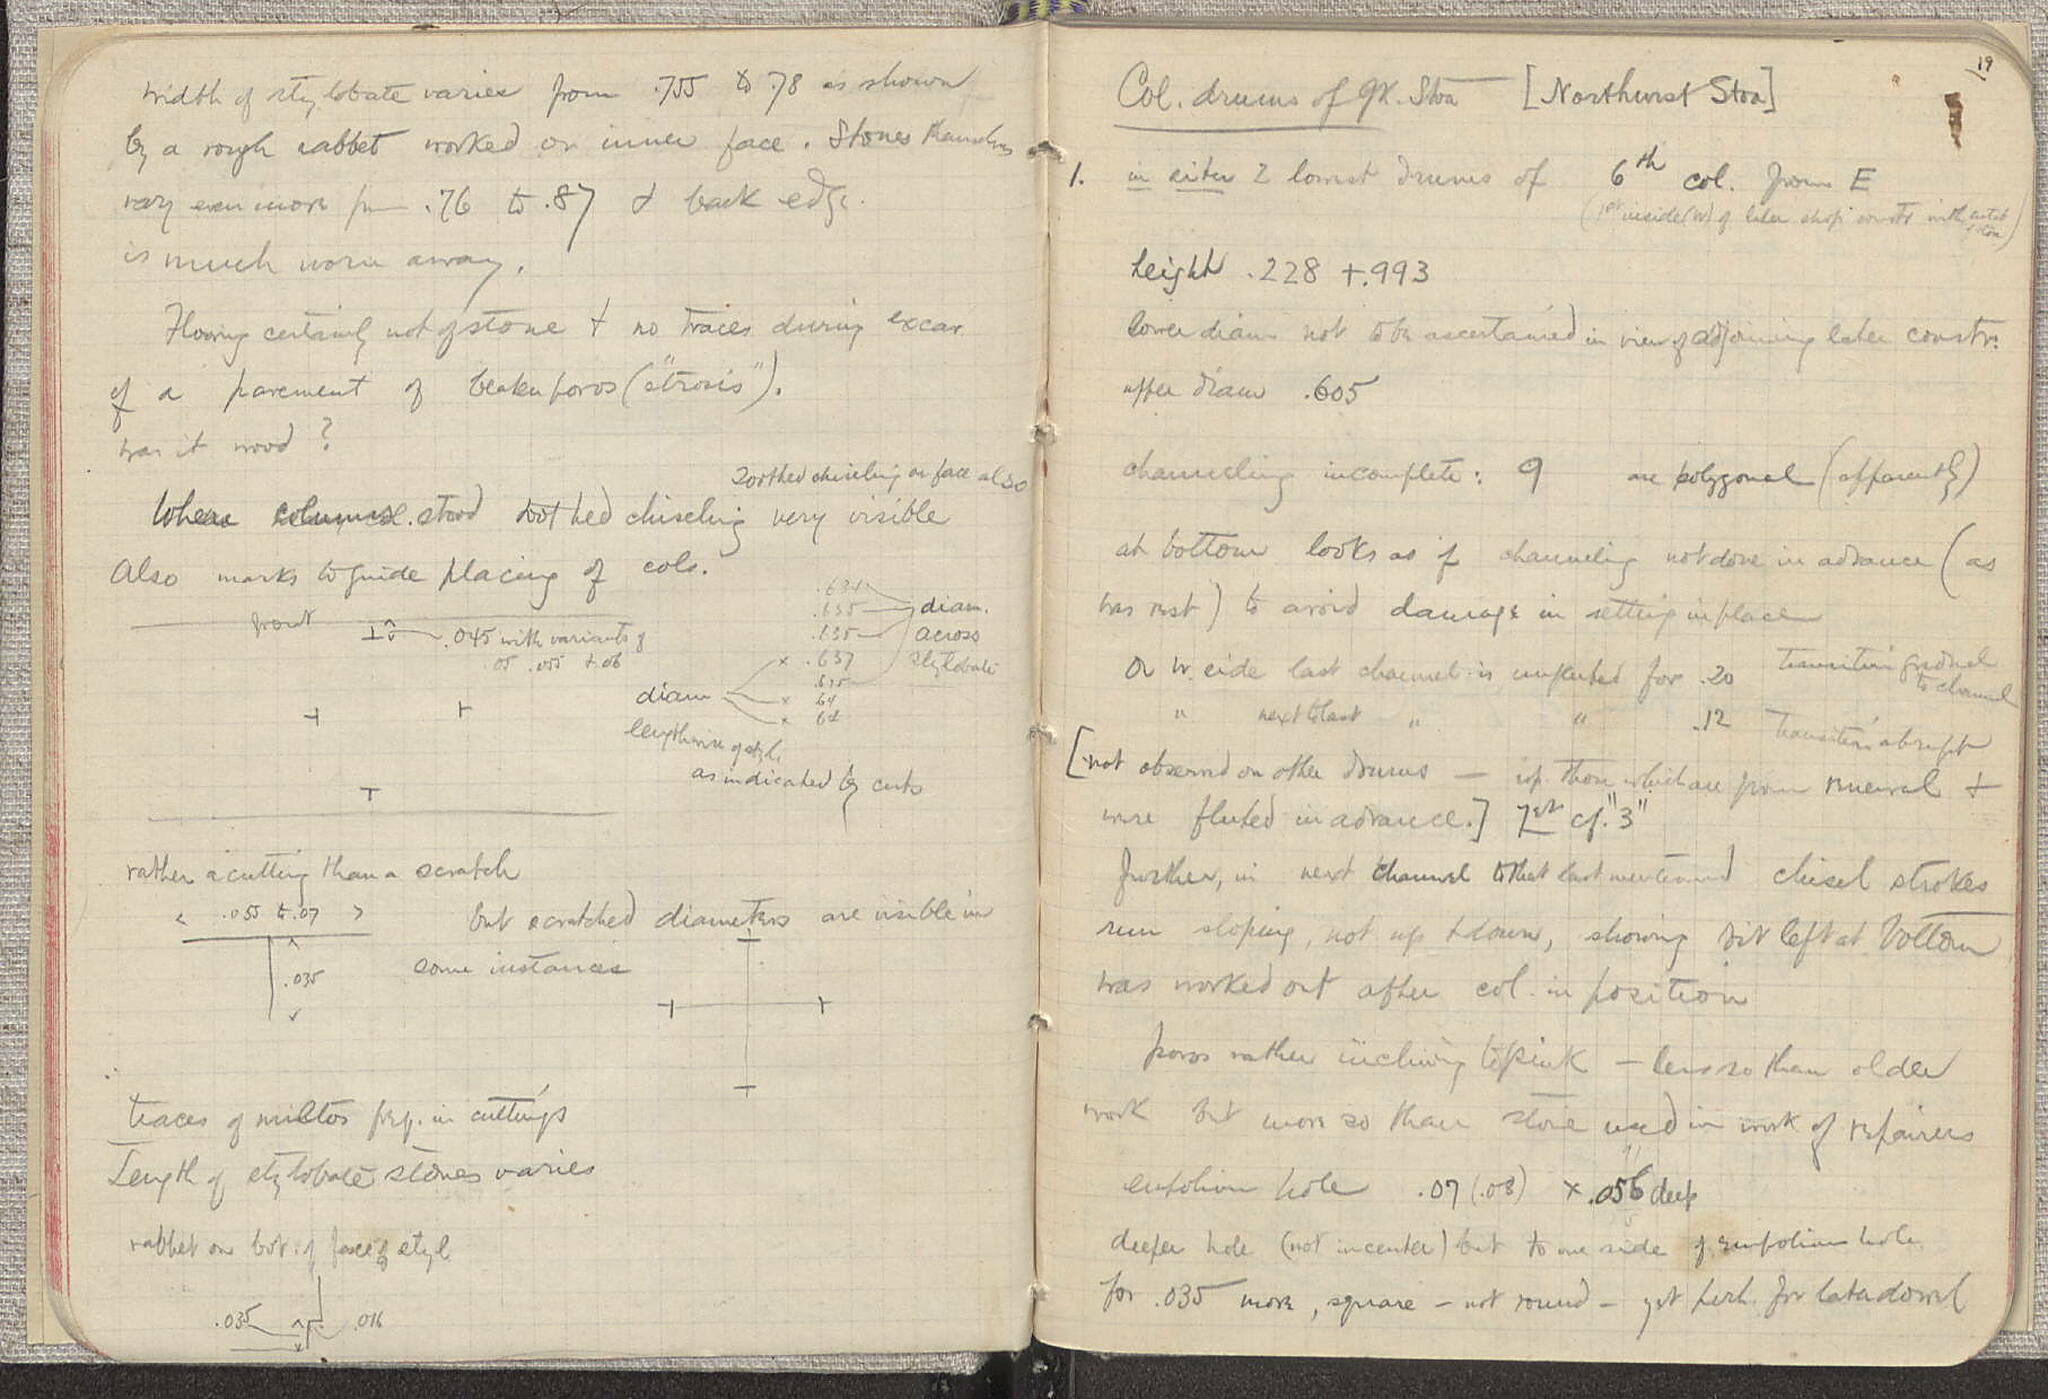 width of stylobate varies from .755 to .78 as shown
by a rough rabbet worked on inner face. Stones themselves
vary even more from .76 to .87 & back edge
is much worn away.
Flooring certainly not of stone & no traces during excav.
of a pavement of beaten poros ("strosis").
was it wood?
Toothed chiseling on face also
Where columns stood toothed chiseling very visible
Also marks to guide placing of cols.
front
.045 with variants of
.05 .055 & .06
.634
.635
.635
x .637
.635
x .64
x .64
diam.
across
stylobate
diam
lengthwise of styl.
as indicated by cuts
rather a cutting than a scratch
< .055 to .07 >
.035
but scratched diameters are visible in
some instances
traces of miltos freq. in cuttings
Length of stylobate stones varies
rabbet on bot. of face of styl.
.035 .016
19
Col. drums of Gk. Stoa [Northwest Stoa]
1. in situ 2 lowest drums of 6th col. from E
(1st inside (W) of later shop constr with
height .228 + .993
lower diam not to be ascertained in view of adjoining later constr.
upper diam .605
channeling incomplete: 9 are polygonal (apparently)
at bottom looks as if channeling not done in advance (as
was rest) to avoid damage in setting in place
On W. side last channel is unfluted for .20 transition gradual
to channel
" next to last " " .12 transition abrupt
[not observed on other drums — esp. those which are from renewal &
were fluted in advance.] yet cf. "3"
Further, in next channel to that last mentioned chisel strokes
run sloping, not up & down, showing bit left at bottom
was worked out after col. in position
poros rather inclining to pink — less so than older
work but more so than stone used in work of repairers
empolion hole .07 (.08) x .056 deep
deeper hole (not in center) but to one side of empolion hole
for .035 more, square – not round – yet perh. for later dowel